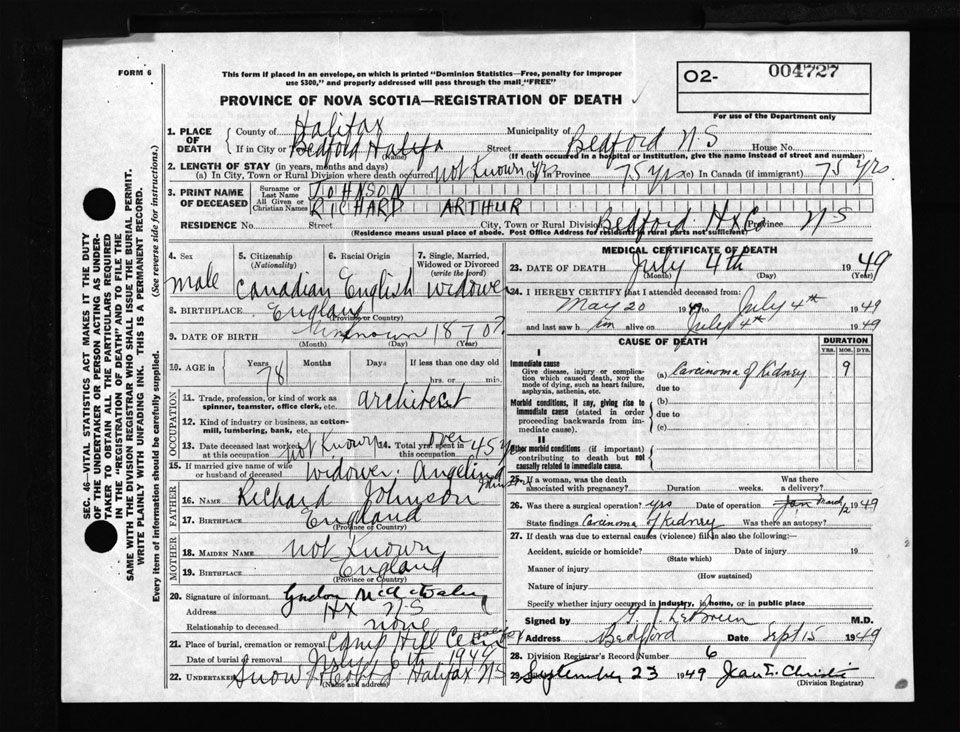 FORM 6
This form if placed in an envelope, on which is printed "Dominion Statistics—Free, penalty for improper
use $300," and properly addressed will pass through the mail "FREE"
PROVINCE OF NOVA SCOTIA—REGISTRATION OF DEATH
O2- 004727
For use of the Department only
SEC. 46—VITAL STATISTICS ACT MAKES IT THE DUTY
OF THE UNDERTAKER OR PERSON ACTING AS UNDER-
TAKER TO OBTAIN ALL THE PARTICULARS REQUIRED
IN THE "REGISTRATION OF DEATH" AND TO FILE THE
SAME WITH THE DIVISION REGISTRAR WHO SHALL ISSUE THE BURIAL PERMIT.
WRITE PLAINLY WITH UNFADING INK. THIS IS A PERMANENT RECORD.
Every item of information should be carefully supplied. (See reverse side for instructions.)
1. PLACE OF DEATH
County of Halifax Municipality of Bedford N-S
If in City or Bedford Halifa Street House No.
(Name) (If death occurred in a hospital or institution, give the name instead of street and number)
2. LENGTH OF STAY (in years, months and days)
(a) In City, Town or Rural Division where death occurred not Known yrs In Province 75 yrs (c) In Canada (if immigrant) 75 yrs
3. PRINT NAME OF DECEASED
Surname or Last Name JOHNSON
All Given or Christian Names RICHARD ARTHUR
RESIDENCE No. Street City, Town or Rural Division Bedford Hx Co Province N S
(Residence means usual place of abode. Post Office Address for residents in rural parts not sufficient)
4. Sex male
5. Citizenship (Nationality) Canadian
6. Racial Origin English
7. Single, Married, Widowed or Divorced (write the word) widower
8. BIRTHPLACE England
(Province or Country)
9. DATE OF BIRTH unknown 1870
(Month) (Day) (Year)
10. AGE in Years 78 Months Days If less than one day old
hrs. or min.
OCCUPATION
11. Trade, profession, or kind of work as
spinner, teamster, office clerk, etc. architect
12. Kind of industry or business, as cotton-
mill, lumbering, bank, etc.
13. Date deceased last worked at this occupation not Known 14. Total yrs. spent in this occupation over 45 yrs
15. If married give name of wife
or husband of deceased widower. Angelina
FATHER
16. Name Richard Johnson
17. Birthplace England
(Province or Country)
MOTHER
18. Maiden Name not Known
19. Birthplace England
(Province or Country)
20. Signature of informant
Address Hx N-S
Relationship to deceased none
21. Place of burial, cremation or removal Camp Hill Halifax
Date of burial or removal July 1949
22. Undertaker Snow Halifax NS
(Name and address)
MEDICAL CERTIFICATE OF DEATH
23. DATE OF DEATH July 4th 1949
(Month) (Day) (Year)
24. I HEREBY CERTIFY that I attended deceased from:
May 20 1949 to July 4th 1949
and last saw him alive on July 4th 1949
CAUSE OF DEATH DURATION
YRS. MOS. DYS.
I
Immediate cause
Give disease, injury or complica-
tion which caused death, NOT the
mode of dying, such as heart failure,
asphyxia, asthenia, etc.
(a) Carcinoma of Kidney 9
due to
Morbid conditions, if any, giving rise to
immediate cause (stated in order
proceeding backwards from im-
mediate cause).
(b)
due to
(c)
II
Other morbid conditions (if important)
contributing to death but not
causally related to immediate cause.
25. If a woman, was the death associated with pregnancy? Duration weeks. Was there a delivery?
26. Was there a surgical operation? yrs Date of operation 1949
State findings Carcinoma of Kidney Was there an autopsy?
27. If death was due to external causes (violence) fill in also the following:—
Accident, suicide or homicide? Date of injury 19
(State which)
Manner of injury
(How sustained)
Nature of injury
Specify whether injury occurred in industry, in home, or in public place
Signed by M.D.
Address Bedford Date Sept 15 1949
28. Division Registrar's Record Number 6
29. September 23 1949 Jean E. Christie
(Division Registrar)